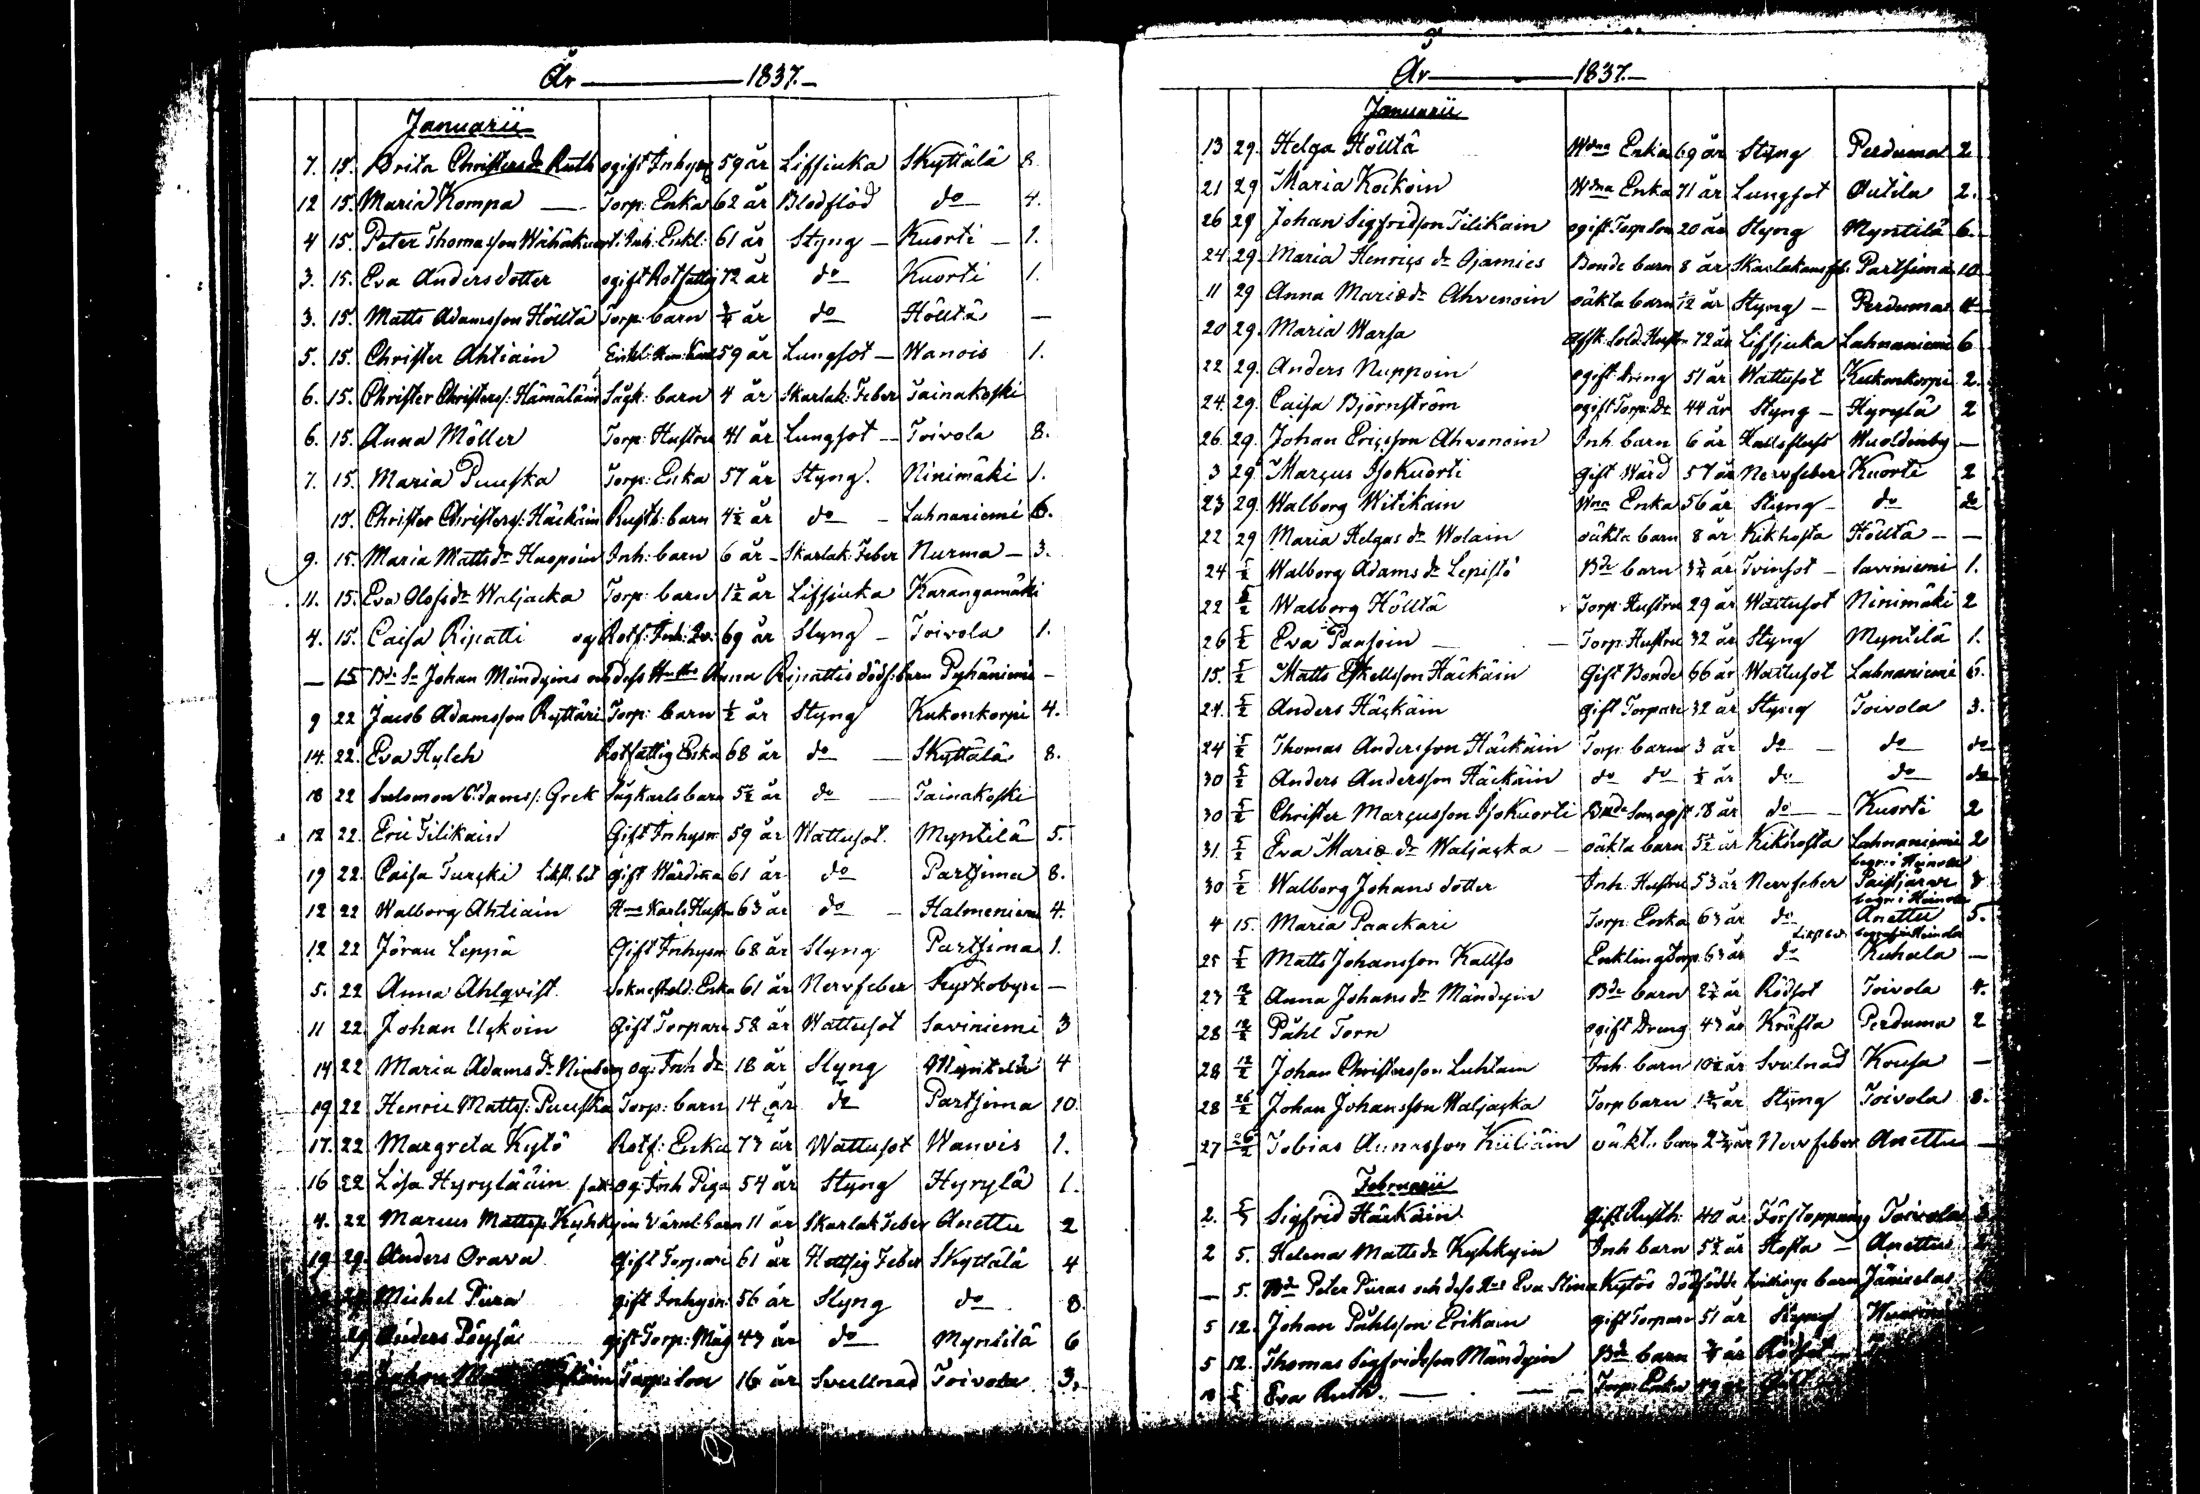 År 1837.
Januarii
7. 15. Brita Christersdr Ruth ogift Inhys 59 år Lissjuka Skyttälä 8.
12 15. Maria Kompa — Torp: Enka 62 år Blodflöd do 4.
4 15. Peter Thomasson Wähäkuorti Inh. Enkl: 61 år Styng — Kuorti — 1.
3. 15. Eva Andersdotter ogift Rotfattig 72 år do Kuorti 1.
3. 15. Matts Adamsson Hölttä Torp: barn ¾ år do Hölttä —
5. 15. Christer Ahtiain 59 år Lungsot — Wanois 1.
6. 15. Christer Christerss: Hämäläin Sågk: barn 4 år Skarlak: Feber Tainakoski
6. 15. Anna Möller Torp: Hustru 41 år Lungsot — Toivola 8.
7. 15. Maria Puuska Torp: Enka 57 år Styng. Ninimäki 1.
15. Christer Christerss: Häckäin Rusth: barn 4½ år do — Lahnaniemi 6.
9. 15. Maria Mattsdr Haapoin Inh: barn 6 år — Skarlak: Feber Nurma — 3.
11. 15. Eva Olofsdr Waljacka Torp: barn 1½ år Lissjuka Karangamäki
4. 15. Caisa Ripatti og Rotf: Inh: 69 år Styng — Toivola 1.
— 15 Bde Sn Johan Mändyins och dess Hustru Anna Ripattis dödf: barn Pyhäniemi —
9 22 Jacob Adamsson Ryttäri Torp: barn ½ år Styng Kukonkorpi 4.
14. 22. Eva Hylch Rotfattig Enka 68 år do — Skyttälä 8.
18 22 Salomon Adamss: Grek Sågkarls barn 5½ år do — Tainakoski
12 22. Eric Tilikain Gift Inhysn 59 år Wattusot. Myntilä 5.
19 22. Caisa Turcki gift Wärdinna 61 år do Partsima 8.
12 22 Walborg Ahtiain Karls Hustru 63 år do — Halmeniemi 4.
12 22 Jöran Leppä Gift Inhysn 68 år Styng Partsima 1.
5. 22 Anna Ahlqvist. Enka 61 år Nervfeber Kyrkobyn —
11 22. Johan Uckoin Gift Torpare 58 år Wattusot Saviniemi 3
14 22 Maria Adamsdr og: Inh dr 18 år Styng Myntilä 4
19 22 Henric Mattss: Puuska Torp: barn 14 år do Partsima 10
17. 22 Margreta Kytö Rotf: Enka 73 år Wattusot Wanois 1.
16 22 Lisa Hyryläin og: Inh Piga 54 år Styng Hyrylä 1.
4. 22 Marcus Mattss: Kyhkyin barn 11 år Skarlak Feber Anettu 2
19 29. Anders Orava Gift Torpare 61 år Hettsig Feber Skyttälä 4
Michel Piira gift Inhysn: 56 år Styng do 8.
29 Anders Pöysä gift Torp: Måg 43 år do — Myntilä 6
Johan Torp: Son 16 år Svullnad Toivola 3.
År 1837.
Januarii
13 29. Helga Höltta Enka 69 år Styng Perduma 2
21 29 Maria Kockoin Enka 71 år Lungsot Outila 2.
26 29 Johan Sigfridson Tilikain ogift Torp: Son 20 år Styng Myntilä 6.
24 29. Maria Henricsdr Ojamies Bonde barn 8 år Skarlakansfeb. Partsima 10
11 29 Anna Mariædr Ahvenoin oäkta barn 1/12 år Styng — Perduma 4
20 29. Maria Warsa Afsk: Sold: Hustru 72 år Lissjuka Lahnaniemi 6
22 29. Anders Nuppoin ogift Dreng 51 år Wattusot Kukonkorpi 2.
24. 29. Caisa Björnström ogift Torp: Dr 44 år Styng — Hyrylä 2
26. 29. Johan Ericsson Ahvenoin Inh. barn 6 år Wuoldenby —
3 29 Marcus IsoKuorti gift Wärd 57 år Nervfeber Kuorti 2
23 29 Walborg Witikain Enka 56 år Styng — do do
22 29 Maria Helgasdr Wolain oäkta barn 8 år Kikhosta Höltta — —
24 5/2 Walborg Adamsdr Lepistö Bde barn 3½ år Tvinsot — Saviniemi 1.
22 5/2 Walborg Höltta Torp: Hustru 29 år Wattusot Ninimäki 2
26 5/2 Eva Paasoin — Torp: Hustru 32 år Styng Myntilä 1.
15. 5/2 Matts Eskellsson Häckäin Gift Bonde 66 år Wattusot Lahnaniemi 6.
24. 5/2 Anders Häckäin gift Torpare 32 år Styng Toivola 3.
24 5/2 Thomas Andersson Häckäin Torp: barn 3 år do — do do
30 5/2 Anders Andersson Häckäin do do ½ år do do do
30 5/2 Christer Marcusson IsoKuorti Bonde Son ogift 18 år do — Kuorti 2
31. 5/2 Eva Mariædr Waljacka — oäkta barn 5½ år Kikhosta Lahnaniemi 2
30 5/2 Walborg Johans dotter Inh. Hustru 53 år Nervfeber begr: i Heinola Paistjärvi 8
4 15. Maria Paackari Torp. Enka 63 år do begr: i Heinola Anettu 5.
25 5/2 Matts Johansson Kallso Enkling Torp: 63 år do begrafn Heinola —
23 12/2 Anna Johansdr Mändyin Bde barn 2¾ år Rödsot Toivola 4.
28 12/2 Påhl Torn ogift Dreng 43 år Kräfta Perduma 2
28 12/2 Johan Christersson Luhtain Inh. barn 10½ år Svulnad Kousa —
28 26/2 Johan Johansson Waljacka Torp barn 1¾ år Styng Toivola 8.
27 26/2 Tobias Annasson Kiiliäin oäkta barn 2¾ år Nervfeber Anettu —
Februarii
2. 5/2 Sigfrid Häckäin Gift Rusth: 40 år Förstoppning Toivola 3.
2 5. Helena Mattsdr Kyhkyin Inh barn 5½ år Hosta — Anettu
— 5. Bde Peter Puras och dess Hu Eva Stina Kytös dödfödde tvillinge barn Jänicsalas
5 12. Johan Påhlsson Erikain gift Torpare 51 år Styng
5 12. Thomas Sigfridsson Mändyin Bde barn ¾ år Rödsot
Eva Ruth. — Torp: Enka